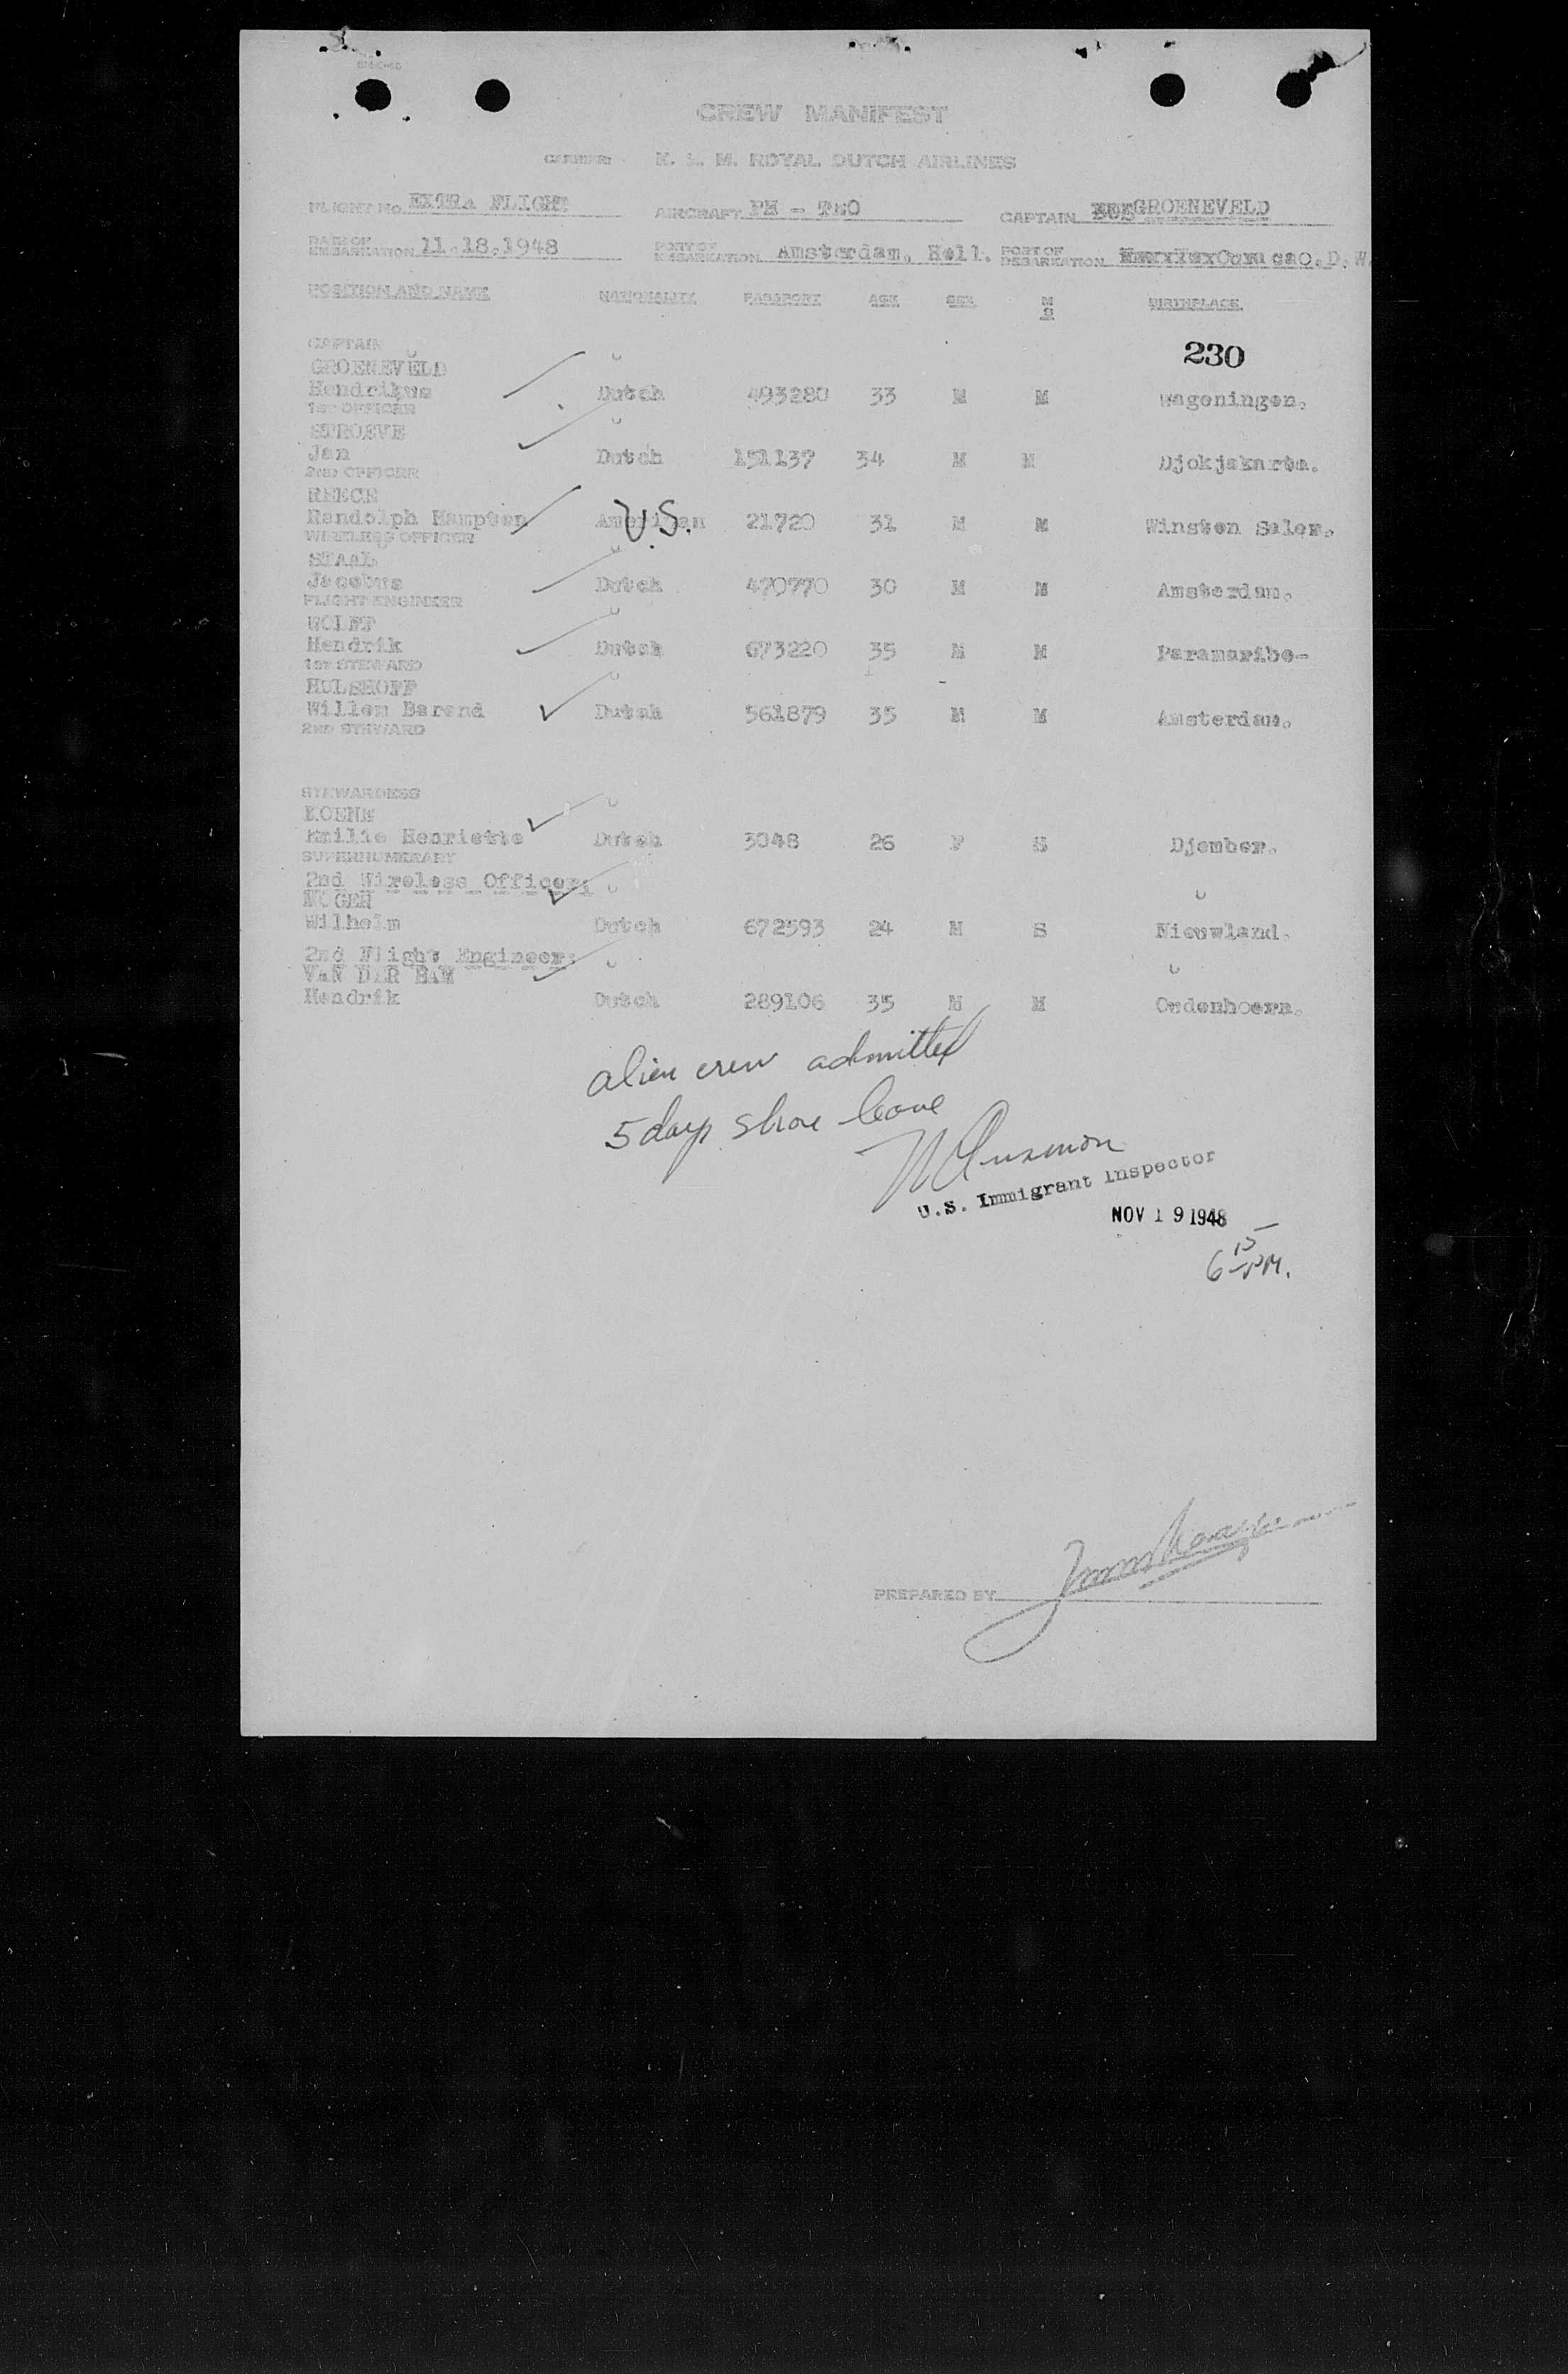 CREW MANIFEST
CARRIER: K. L. M. ROYAL DUTCH AIRLINES
FLIGHT No. EXTRA FLIGHT AIRCRAFT PH - TEO CAPTAIN GROENEVELD
DATE OF EMBARKATION 11.18.1948 PORT OF EMBARKATION Amsterdam, Holl. PORT OF DEBARKATION Curacao.D.W.
POSITION AND NAME NATIONALITY PASSPORT AGE SEX M S BIRTHPLACE
CAPTAIN
230
GROENEVELD
Hendrikus Dutch 493280 33 M M Wageningen.
1ST OFFICER
STROEVE
Jan Dutch 151137 34 M M Djokjakarta.
2ND OFFICER
REECE
Randolph Hampten American U.S. 21720 31 M M Winsten Salem.
WIRELESS OFFICER
STAAL
Jacobus Dutch 470770 30 M M Amsterdam.
FLIGHT ENGINEER
WOLFF
Hendrik Dutch 673220 35 M M Paramaribo-
1ST STEWARD
HULSHOFF
Willem Barend Dutch 561879 35 M M Amsterdam.
2ND STEWARD
STEWARDESS
KOENE
Emilie Henriette Dutch 3048 26 F S Djember.
SUPERNUMERARY
2nd Wireless Officer:
MOGEN
Wilhelm Dutch 672593 24 M S Nieuwland.
2nd Flight Engineer:
VAN DER HAM
Hendrik Dutch 289106 35 M M Oudenhoorn.
alien crew admitted
5 days shore leave
U.S. Immigrant Inspector
NOV 19 1948
6 15 PM.
PREPARED BY